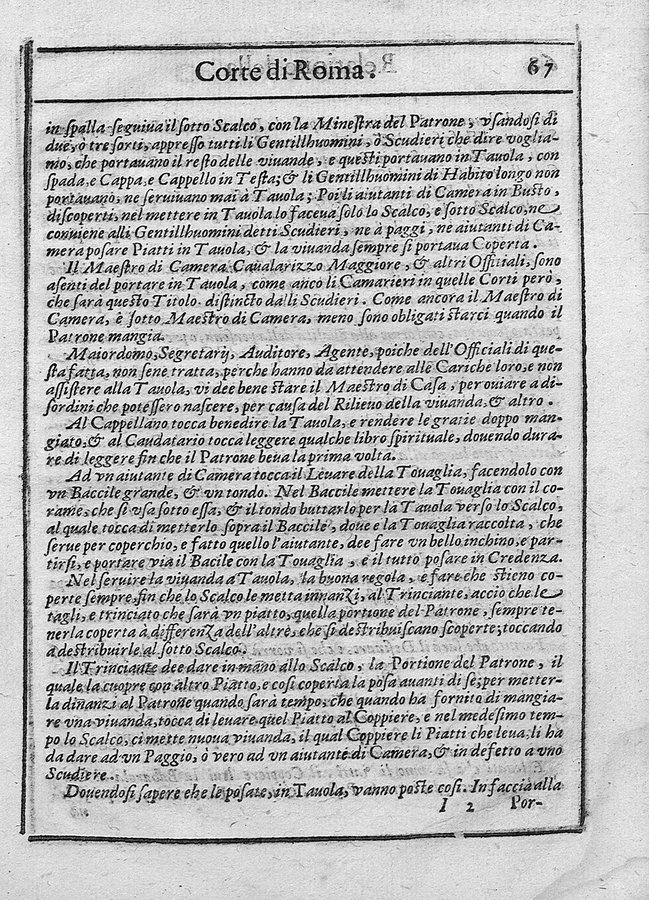 Corte di Roma. 67
in ſpalla ſeguiua il ſotto Scalco, con la Mineſtra del Patrone, vſandoſi di
due, ò tre ſorti, appreſſo tutti li Gentillhuomini, ò Scudieri che dire voglia-
mo, che portauano il reſto delle viuande, e queſti portauano in Tauola, con
ſpada, e Cappa, e Cappello in Teſta; & li Gentillhuomini di Habito longo non
portauano, ne ſeruiuano mai à Tauola; Poi li aiutanti di Camera in Buſto,
diſcoperti, nel mettere in Tauola lo faceua ſolo lo Scalco, e ſotto Scalco, ne
conuiene alli Gentillhuomini detti Scudieri, ne à paggi, ne aiutanti di Ca-
mera poſare Piatti in Tauola, & la viuanda ſempre ſi portaua Coperta.
Il Maeſtro di Camera Caualarizzo Maggiore, & altri Officiali, ſono
aſenti del portare in Tauola, come anco li Camarieri in quelle Corti però,
che ſarà queſto Titolo diſtincto dalli Scudieri. Come ancora il Maeſtro di
Camera, è ſotto Maeſtro di Camera, meno ſono obligati ſtarci quando il
Patrone mangia.
Maiordomo, Segretarij, Auditore, Agente, poiche dell'Officiali di que-
ſta fatta, non ſene tratta, perche hanno da attendere alle Cariche loro, e non
aſſiſtere alla Tauola, vi dee bene ſtare il Maeſtro di Caſa, per ouiare a di-
ſordini che poteſſero naſcere, per cauſa del Rilieuo della viuanda, & altro.
Al Cappellano tocca benedire la Tauola, e rendere le gratie doppo man-
giato, & al Caudatario tocca leggere qualche libro ſpirituale, douendo dura-
re di leggere fin che il Patrone beua la prima volta.
Ad vn aiutante di Camera tocca il Leuare della Touaglia, facendolo con
vn Baccile grande, & vn tondo. Nel Baccile mettere la Touaglia con il co-
rame, che ſi vſa ſotto eſſa, & il tondo buttarlo per la Tauola verſo lo Scalco,
al quale tocca di metterlo ſopra il Baccile, doue e la Touaglia raccolta, che
ſerue per coperchio, e fatto quello l'aiutante, dee fare vn bello inchino, e par-
tirſi, e portare via il Bacile con la Touaglia, e il tutto poſare in Credenza.
Nel ſeruire la viuanda à Tauola, la buona regola, e fare che ſtieno co-
perte ſempre, fin che lo Scalco le metta innanzi, al Trinciante, accio che le
tagli, e trinciato che ſarà vn piatto, quella portione del Patrone, ſempre te-
nerla coperta à differenza dell'altre, che ſi deſtribuiſcano ſcoperte; toccando
a deſtribuirle al ſotto Scalco.
Il Trinciante dee dare in mano allo Scalco, la Portione del Patrone, il
quale la cuopre con altro Piatto, e coſi coperta la poſa auanti di ſe; per metter-
la dinanzi al Patrone quando ſarà tempo, che quando ha fornito di mangia-
re vna viuanda, tocca di leuare quel Piatto al Coppiere, e nel medeſimo tem-
po lo Scalco, ci mette nuoua viuanda, il qual Coppiere li Piatti che leua, li ha
da dare ad vn Paggio, ò vero ad vn aiutante di Camera, & in defetto a vno
Scudiere.
Douendoſi ſapere che le poſate, in Tauola, vanno poſte coſi. In faccia alla
I 2 Por-